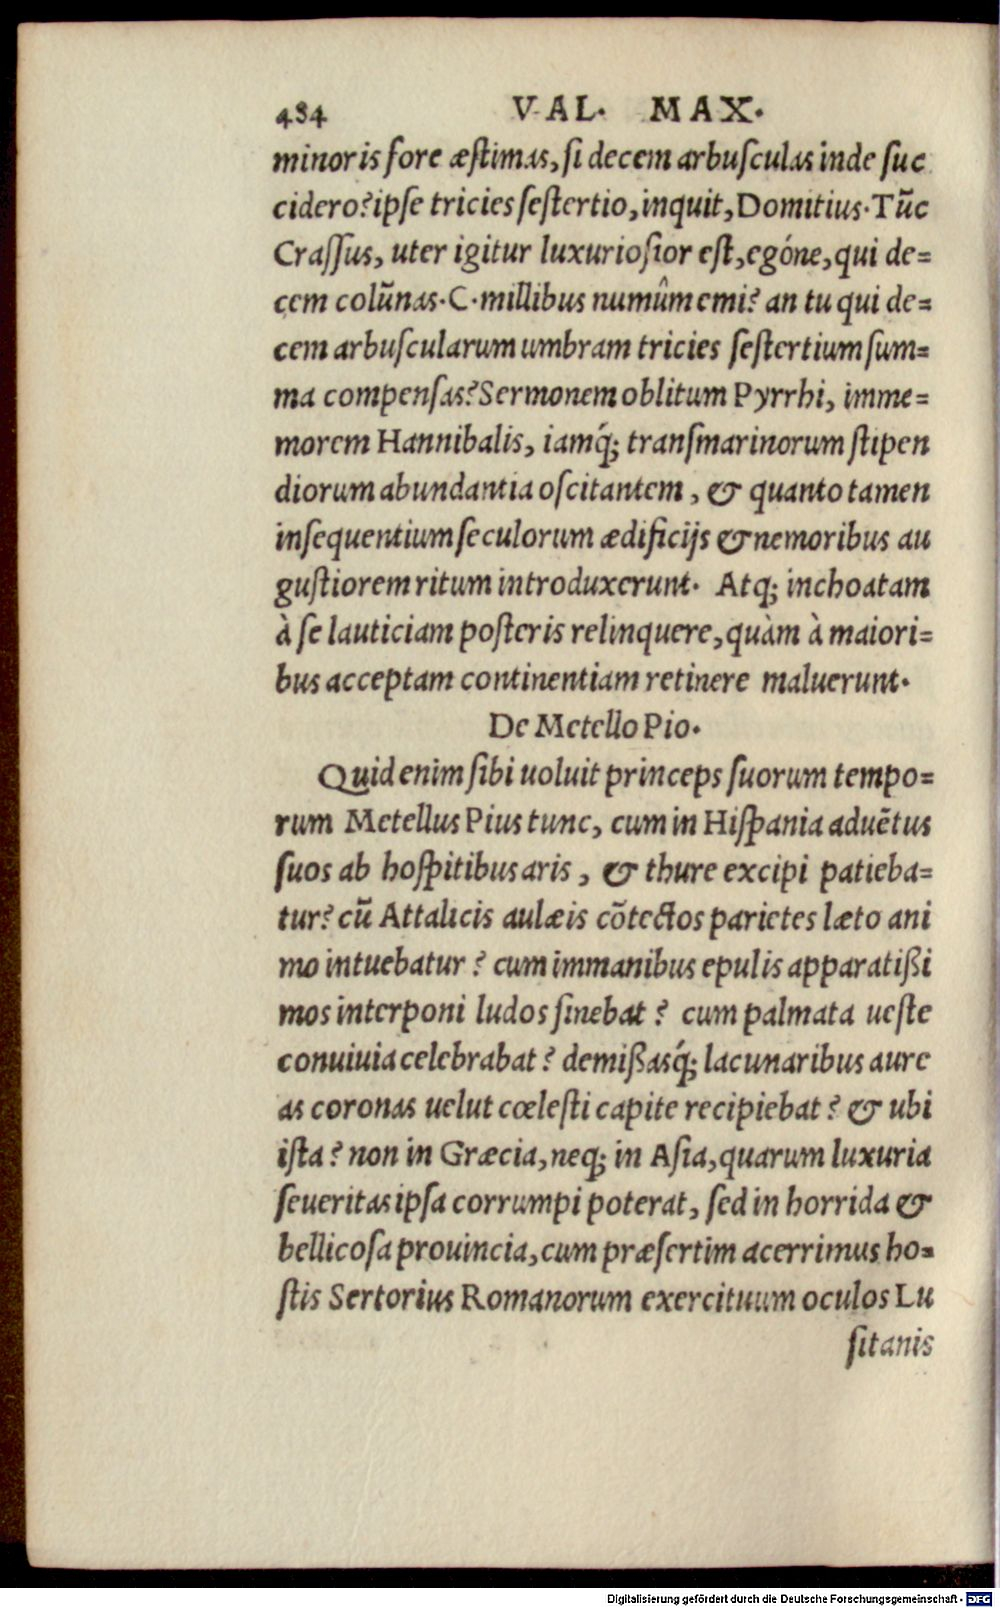 484 VAL. MAX.
minoris fore æſtimas, ſi decem arbuſculas inde ſuc
cidero? ipſe tricies ſeſtertio, inquit, Domitius. Tũc
Craſſus, uter igitur luxurioſior eſt, egóne, qui de=
cem colũnas. C. millibus numûm emi? an tu qui de=
cem arbuſcularum umbram tricies ſeſtertium ſum=
ma compenſas? Sermonem oblitum Pyrrhi, imme=
morem Hannibalis, iamq́; tranſmarinorum ſtipen
diorum abundantia oſcitantem, & quanto tamen
inſequentium ſeculorum ædificijs & nemoribus au
guſtiorem ritum introduxerunt. Atq; inchoatam
à ſe lauticiam poſteris relinquere, quàm à maiori=
bus acceptam continentiam retinere maluerunt.
De Metello Pio.
Quid enim ſibi uoluit princeps ſuorum tempo=
rum Metellus Pius tunc, cum in Hiſpania aduẽtus
ſuos ab hoſpitibus aris, & thure excipi patieba=
tur? cũ Attalicis aulæis cõtectos parietes læto ani
mo intuebatur? cum immanibus epulis apparatißi
mos interponi ludos ſinebat? cum palmata ueſte
conuiuia celebrabat? demißasq́; lacunaribus aure
as coronas uelut cœleſti capite recipiebat? & ubi
iſta? non in Græcia, neq; in Aſia, quarum luxuria
ſeueritas ipſa corrumpi poterat, ſed in horrida &
bellicoſa prouincia, cum præſertim acerrimus ho=
ſtis Sertorius Romanorum exercituum oculos Lu
ſitanis
Digitalisierung gefördert durch die Deutsche Forschungsgemeinschaft - DFG